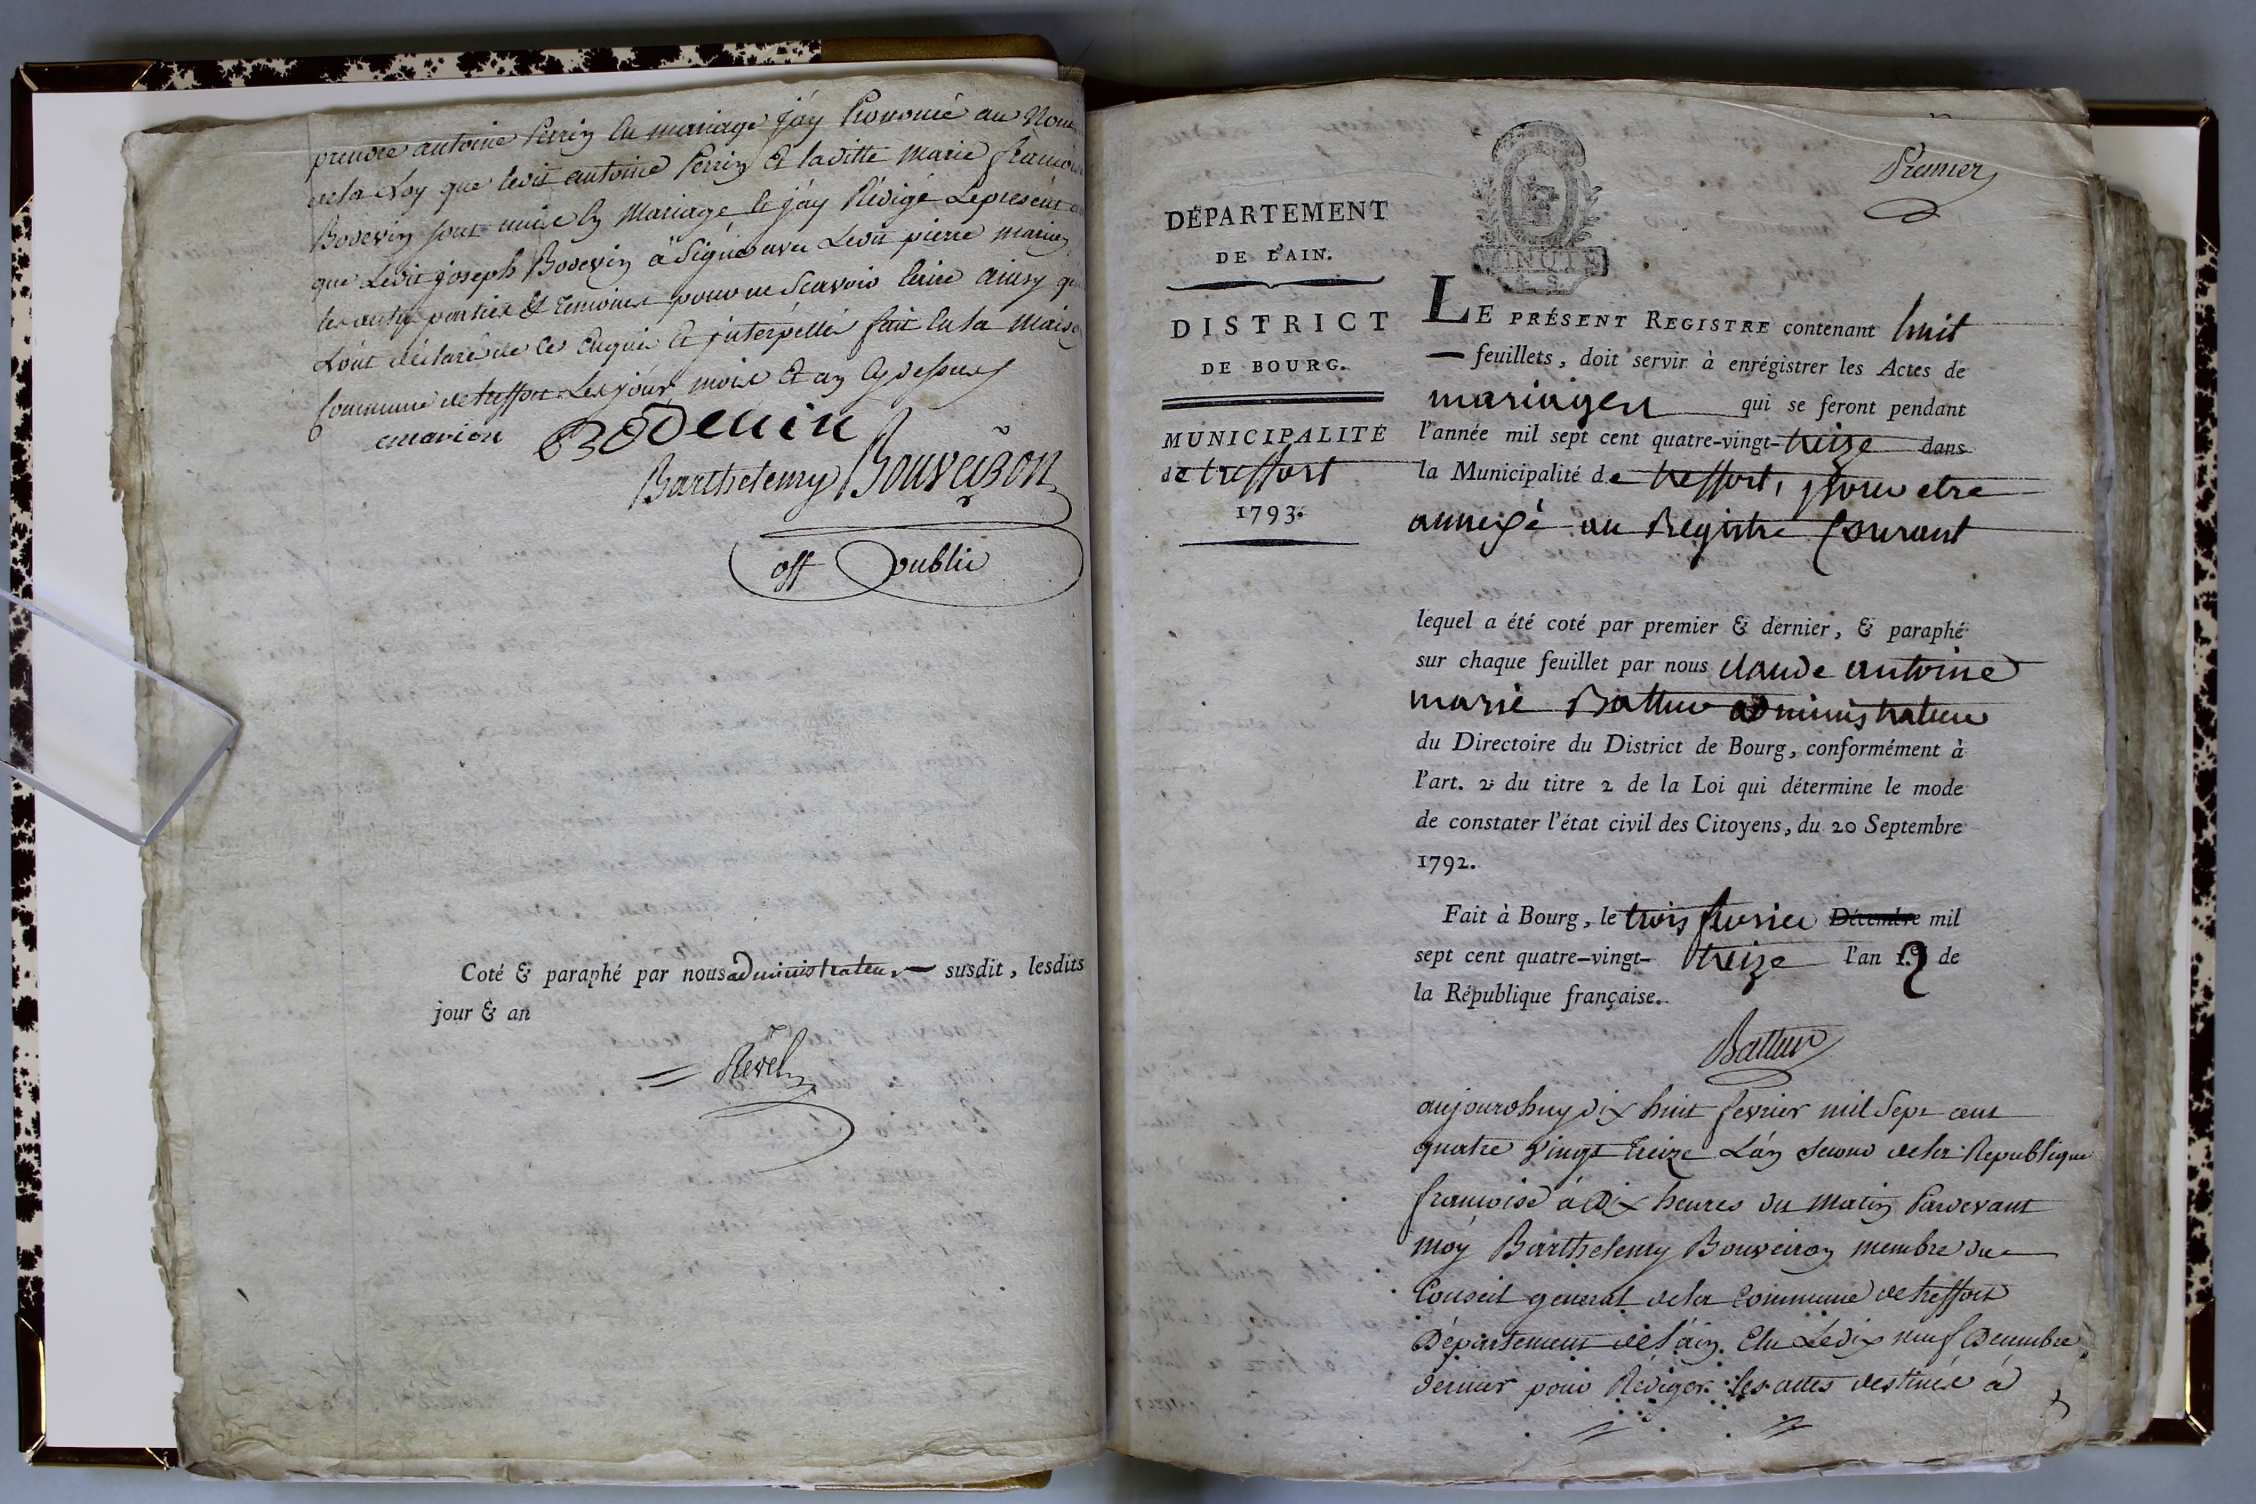 prendre antoine Perrin en mariage j'ay Prononcé au Nom
de la Loy que ledit antoine Perrin Et laditte Marie francoise
Bodevin sont unis En Mariage Et j'ay Rédigé Le présent
que Ledit joseph Bodevin a Signé avec Ledit pierre Marion
les autres parties Et temoins pour ne Scavoir Ecrire ainsy qu
L'ont déclaré de ce Enquis Et interpellé fait En la Maison
Commune de treffort Les jour, mois Et an Cy dessus
marion BODEVIN
Barthelemy Bouveiron
off public
Coté & paraphé par nous administrateur susdit, lesdits
jour & an
Revel
Premier
DÉPARTEMENT
DE L'AIN.
DISTRICT
DE BOURG.
MUNICIPALITÉ
de treffort
1793.
MINUTE
4 S
LE PRÉSENT REGISTRE contenant huit
feuillets, doit servir à enrégistrer les Actes de
mariages qui se feront pendant
l'année mil sept cent quatre-vingt-treize dans
la Municipalité de treffort, pour etre
annexé au Registre Courant
lequel a été coté par premier & dernier, & paraphé
sur chaque feuillet par nous claude antoine
marie Battur administrateur
du Directoire du District de Bourg, conformément à
l'art. 2 du titre 2 de la Loi qui détermine le mode
de constater l'état civil des Citoyens, du 20 Septembre
1792.
Fait à Bourg, le trois fevrier Décembre mil
sept cent quatre-vingt- treize l'an 2 de
la République française.
Battur
aujourdhuy dix huit fevrier mil Sept cent
quatre Vingt treize L'an Second de la Republique
francoise à Dix heures du Matin Pardevant
moy Barthelemy Bouveiron membre du
Conseil general de la Commune de treffort
Département de l'ain. Elu Le dix neuf Decembre
dernier pour Rédiger les actes destinés à